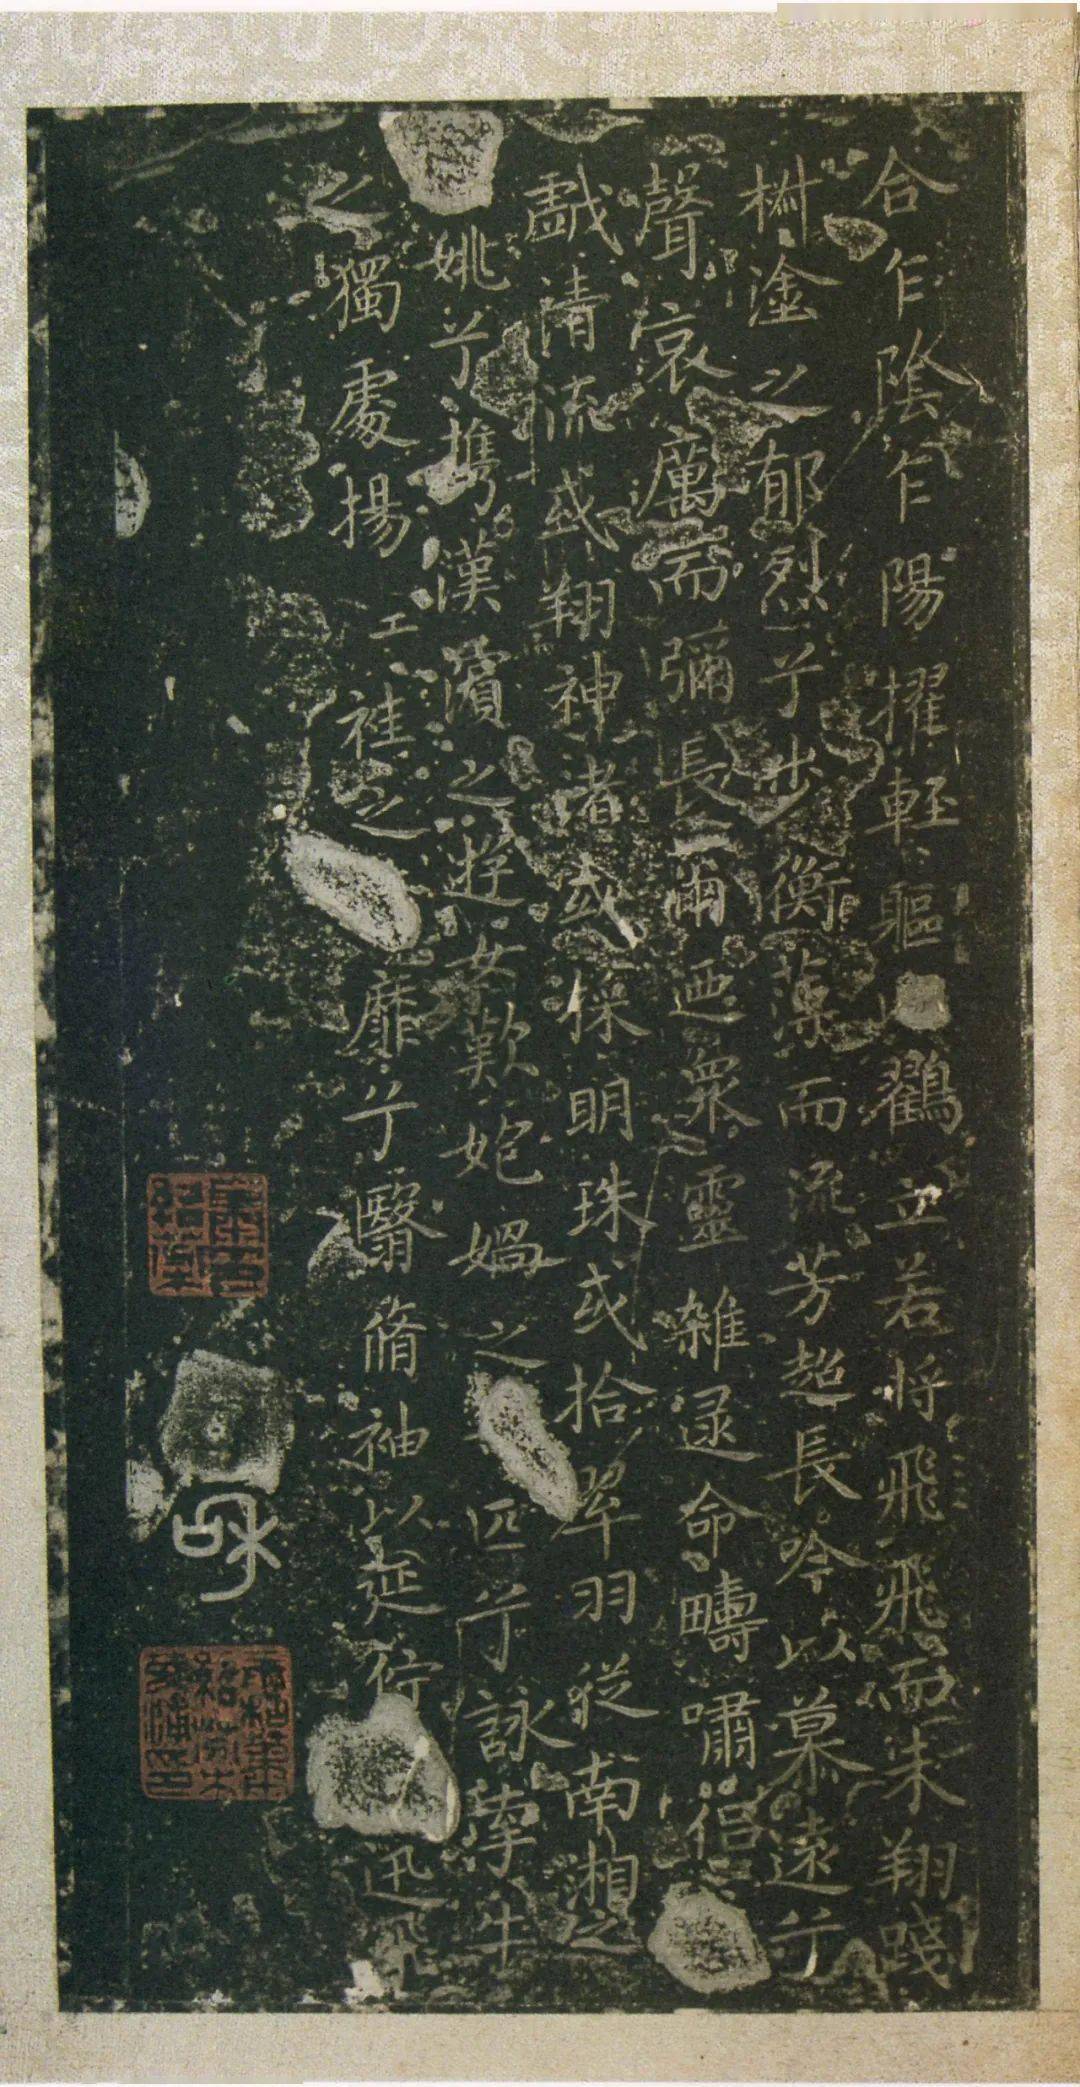 合乍陰乍陽擢輕軀以鶴立若将飛飛而未翔踐
椒塗之郁烈兮步衡薄而流芳超長吟以慕遠兮
聲哀厲而彌長爾迺衆靈雜遝命疇嘯侣
戲清流或翔神渚或採明珠或拾翠羽從南湘之
姚兮攜漢濱之遊女歎匏媧之匹兮詠牽牛
之獨處揚袿之靡兮翳脩袖以延佇迅飛